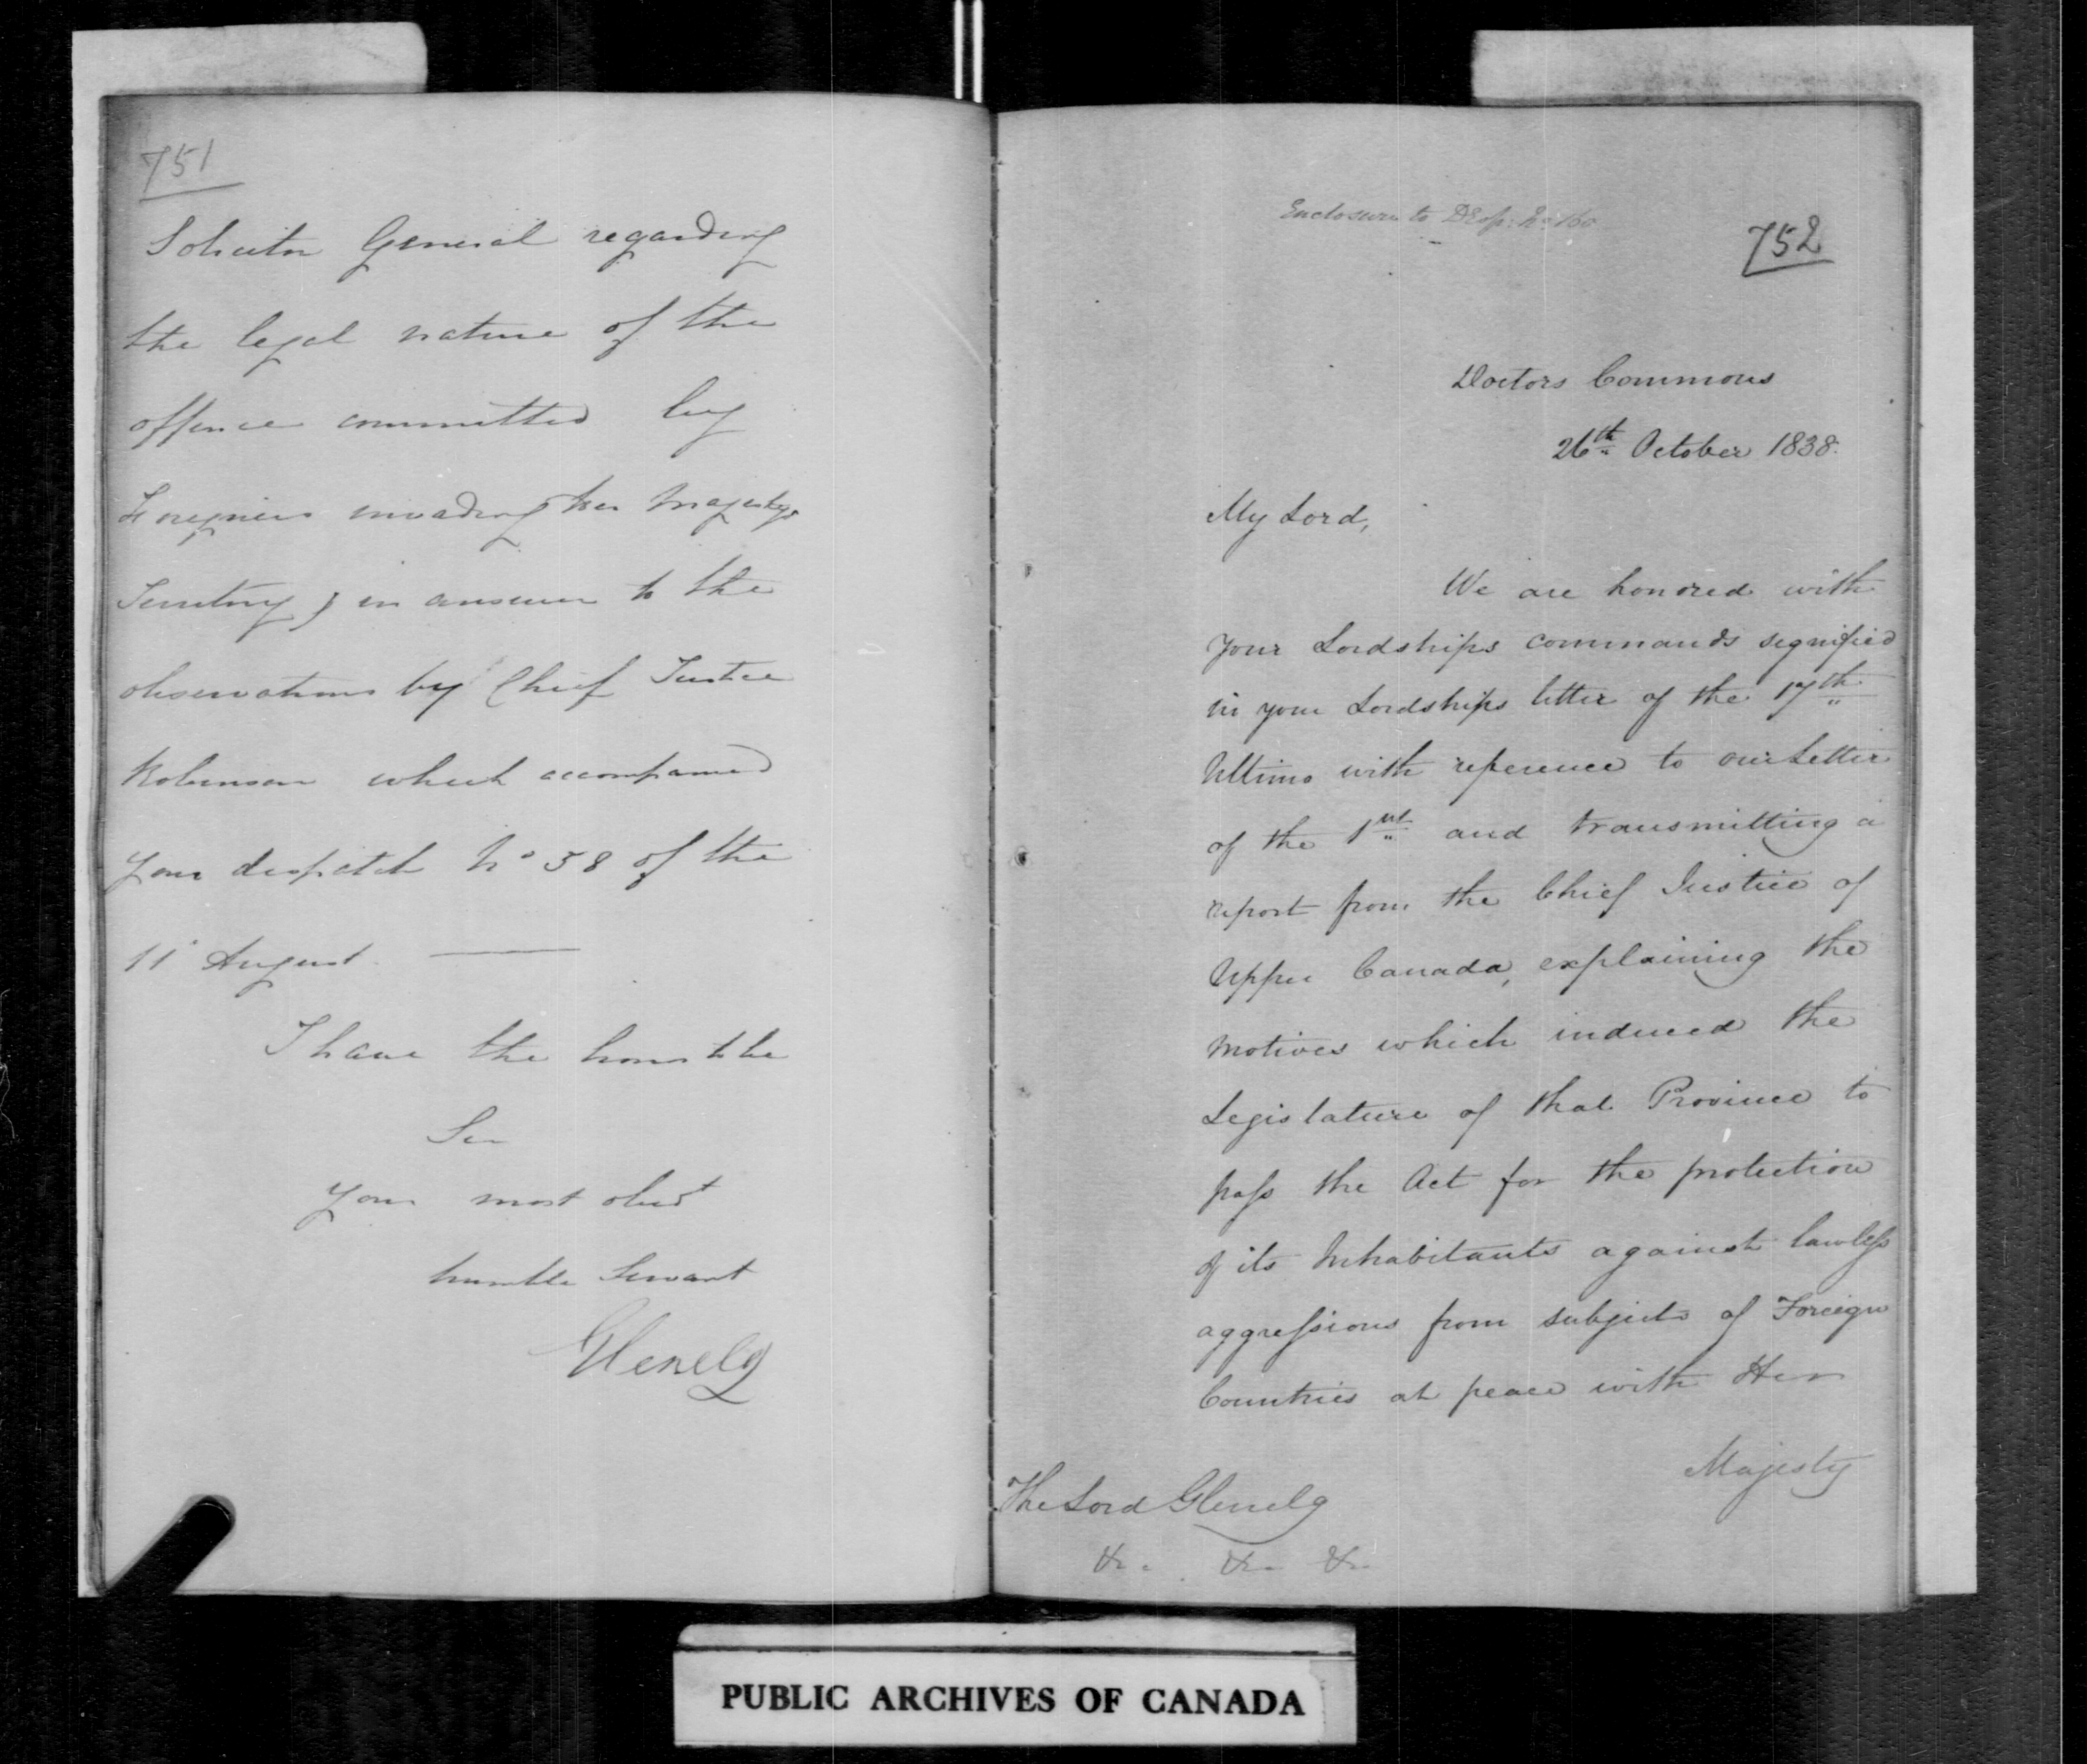 751
Solicitor General regarding
the legal nature of the
offence committed by
Foreigners invading her Majestys
Territory, in answer to the
observations by Chief Justice
Robinson which accompanied
your despatch No 58 of the
11 August.
I have the honor to be
Sir
Your most obedt
humble Servant
Glenelg
Enclosure to Desp: No 160
752
Doctors Commons
26th October 1838.
My Lord,
We are honored with
your Lordships commands signified
in your Lordships letter of the 17th
Ultimo with reference to our Letter
of the 1st and transmitting a
report from the Chief Justice of
Upper Canada, explaining the
motives which induced the
Legislature of that Province to
pass the Act for the protection
of its Inhabitants against lawless
aggressions from subjects of Foreign
Countries at peace with Her
Majesty
The Lord Glenelg
&c. &c. &c.
PUBLIC ARCHIVES OF CANADA